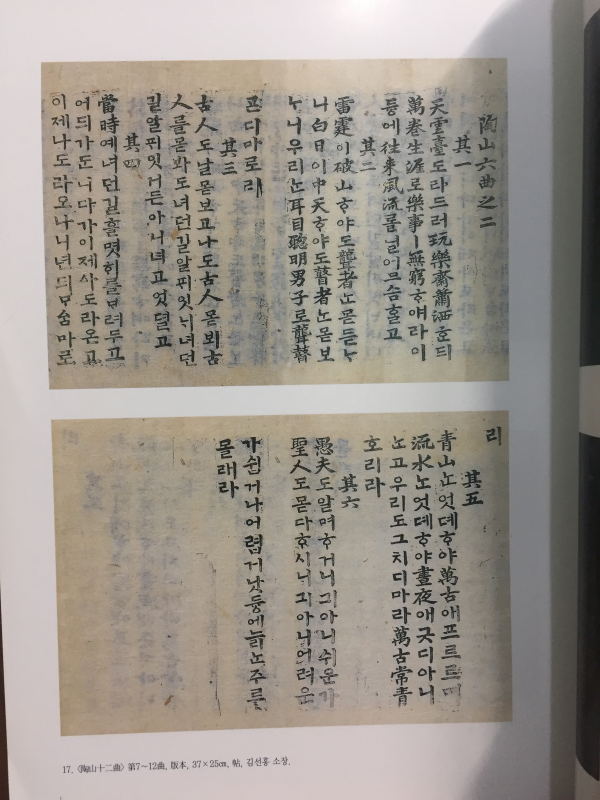 陶山六曲之二
其一
天雲臺도라드러玩樂齋蕭洒ᄒᆞᆫᄃᆡ
萬卷生涯로樂事ㅣ無窮ᄒᆞ얘라이
듕에往來風流ᄅᆞᆯ닐어므슴ᄒᆞᆯ고
其二
雷霆이破山ᄒᆞ야도聾者ᄂᆞᆫ몯듣ᄂᆞ
니白日이中天ᄒᆞ야도瞽者ᄂᆞᆫ몯보
ᄂᆞ니우리ᄂᆞᆫ耳目聰明男子로聾瞽
ᄀᆞᆮ디마로리
其三
古人도날몯보고나도古人몯뵈古
人를몯봐도녀던길알ᄑᆡ잇ᄂᆡ녀던
길알ᄑᆡ잇거든아니녀고엇뎔고
其四
當時예녀던길흘몃ᄒᆡ를ᄇᆞ려두고
어듸가ᄃᆞᆫ니다가이제ᅀᅡ도라온고
이제나도라오나니년ᄃᆡᄆᆞᅀᆞᆷ마로
리
其五
青山ᄂᆞᆫ엇뎨ᄒᆞ야萬古애프르르며
流水ᄂᆞᆫ엇뎨ᄒᆞ야晝夜애긋디아니
ᄂᆞᆫ고우리도그치디마라萬古常青
호리라
其六
愚夫도알며ᄒᆞ거니긔아니쉬운가
聖人도몯다ᄒᆞ시니긔아니어려운
가쉽거나어렵거낫듕에늙ᄂᆞᆫ주를
몰래라
17.《陶山十二曲》第7~12曲, 版本, 37×25㎝, 帖, 김선홍 소장.